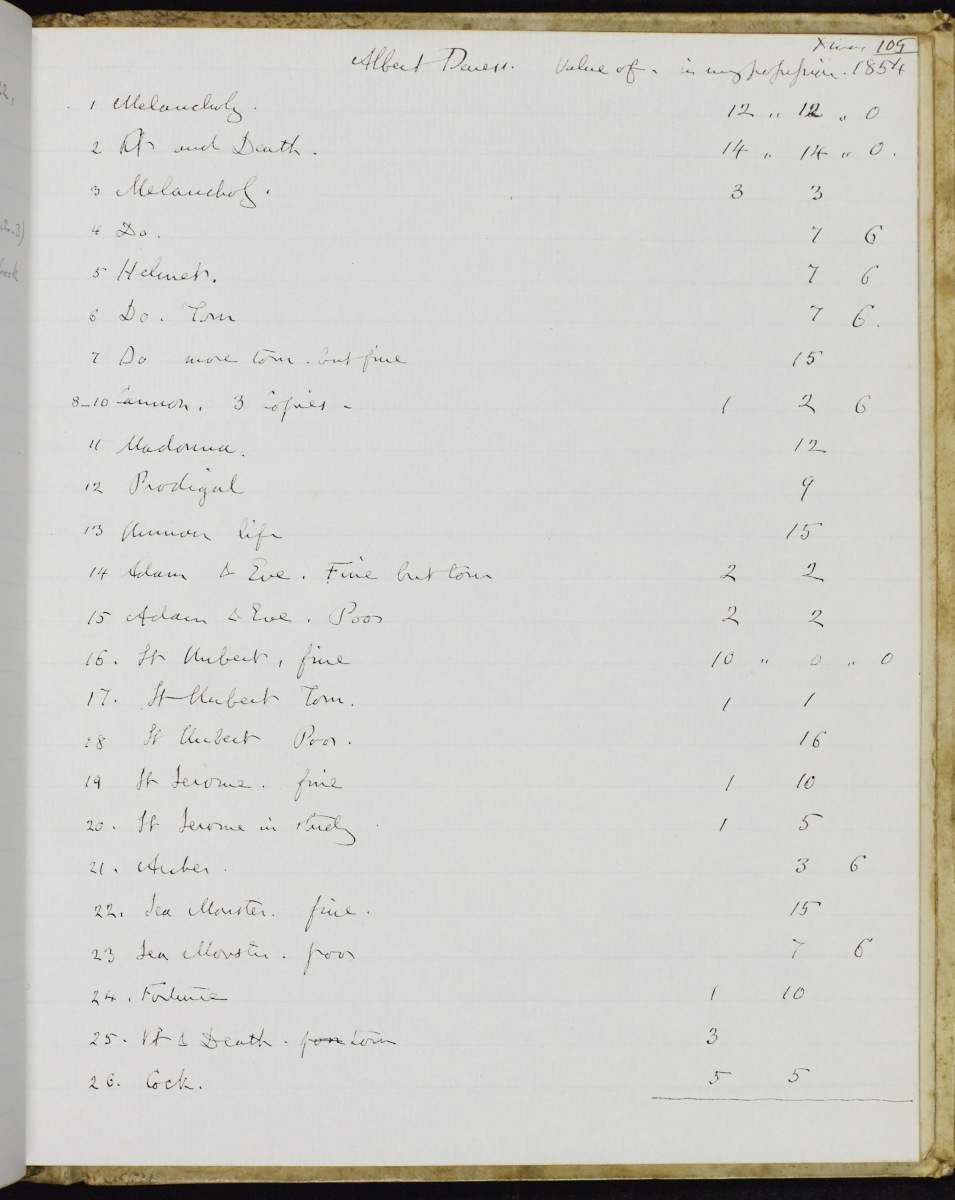 Xmas 109
Albert Durers. Value of. in my possession. 1854
1 Melancholy. 12 " 12 " 0
2 Kt and Death. 14 " 14 " 0.
3 Melancholy. 3 3
4 Do. 7 6
5 Helmet. 7 6
6 Do. Torn 7 6.
7 Do more torn. but fine 15
8-10 Cannon. 3 Copies - 1 2 6
11 Madonna. 12
12 Prodigal 9
13 Human Life 15
14 Adam & Eve. Fine but torn 2 2
15 Adam & Eve. Poor 2 2
16. St Hubert, fine 10 " 0 " 0
17. St Hubert Torn. 1 1
18 St Hubert Poor. 16
19 St Jerome. fine 1 10
20. St Jerome in study 1 5
21. 3 6
22. Sea Monster. fine. 15
23 Sea Monster. poor 7 6
24. Fortune 1 10
25. Kt & Death. torn 3
26. Cock. 5 5
22,
2..3)
book